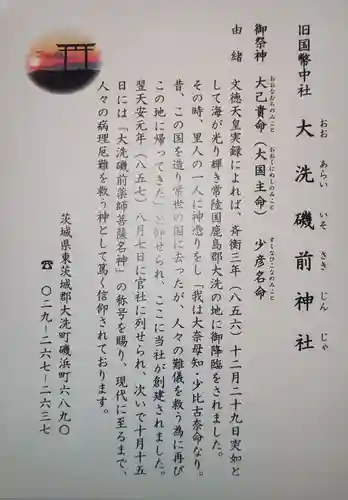 旧国幣中社 大洗磯前神社
おお あらい いそ さき じん じゃ
御祭神 大己貴命（大国主命） 少彦名命
おおなむちのみこと おおくにぬしのみこと すくなひこなのみこと
由緒
文徳天皇実録によれば、斉衡三年（八五六）十二月二十九日突如と
して海が光り輝き常陸国鹿島郡大洗の地に御降臨をされました。
その時、里人の一人に神憑りをし「我は大奈母知・少比古奈命なり。
昔、この国を造り常世の国に去ったが、人々の難儀を救う為に再び
この地に帰ってきた」と仰せられ、ここに当社が創建されました。
翌天安元年（八五七）八月七日に官社に列せられ、次いで十月十五
日には「大洗磯前薬師菩薩名神」の称号を賜り、現代に至るまで、
人々の病理厄難を救う神として篤く信仰されております。
茨城県東茨城郡大洗町磯浜町六八九〇
☎ 〇二九－二六七－二六三七